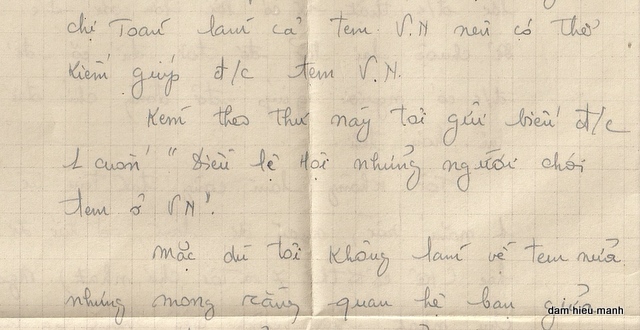 chị Toàn làm cả tem V.N nên có thể
kiếm giúp đ/c tem V.N.
Kèm theo thư này tôi gửi biếu đ/c
1 cuốn "Điều lệ Hội những người chơi
tem ở VN".
Mặc dù tôi không làm về tem nữa
nhưng mong rằng quan hệ bạn giữa
dam hieu manh